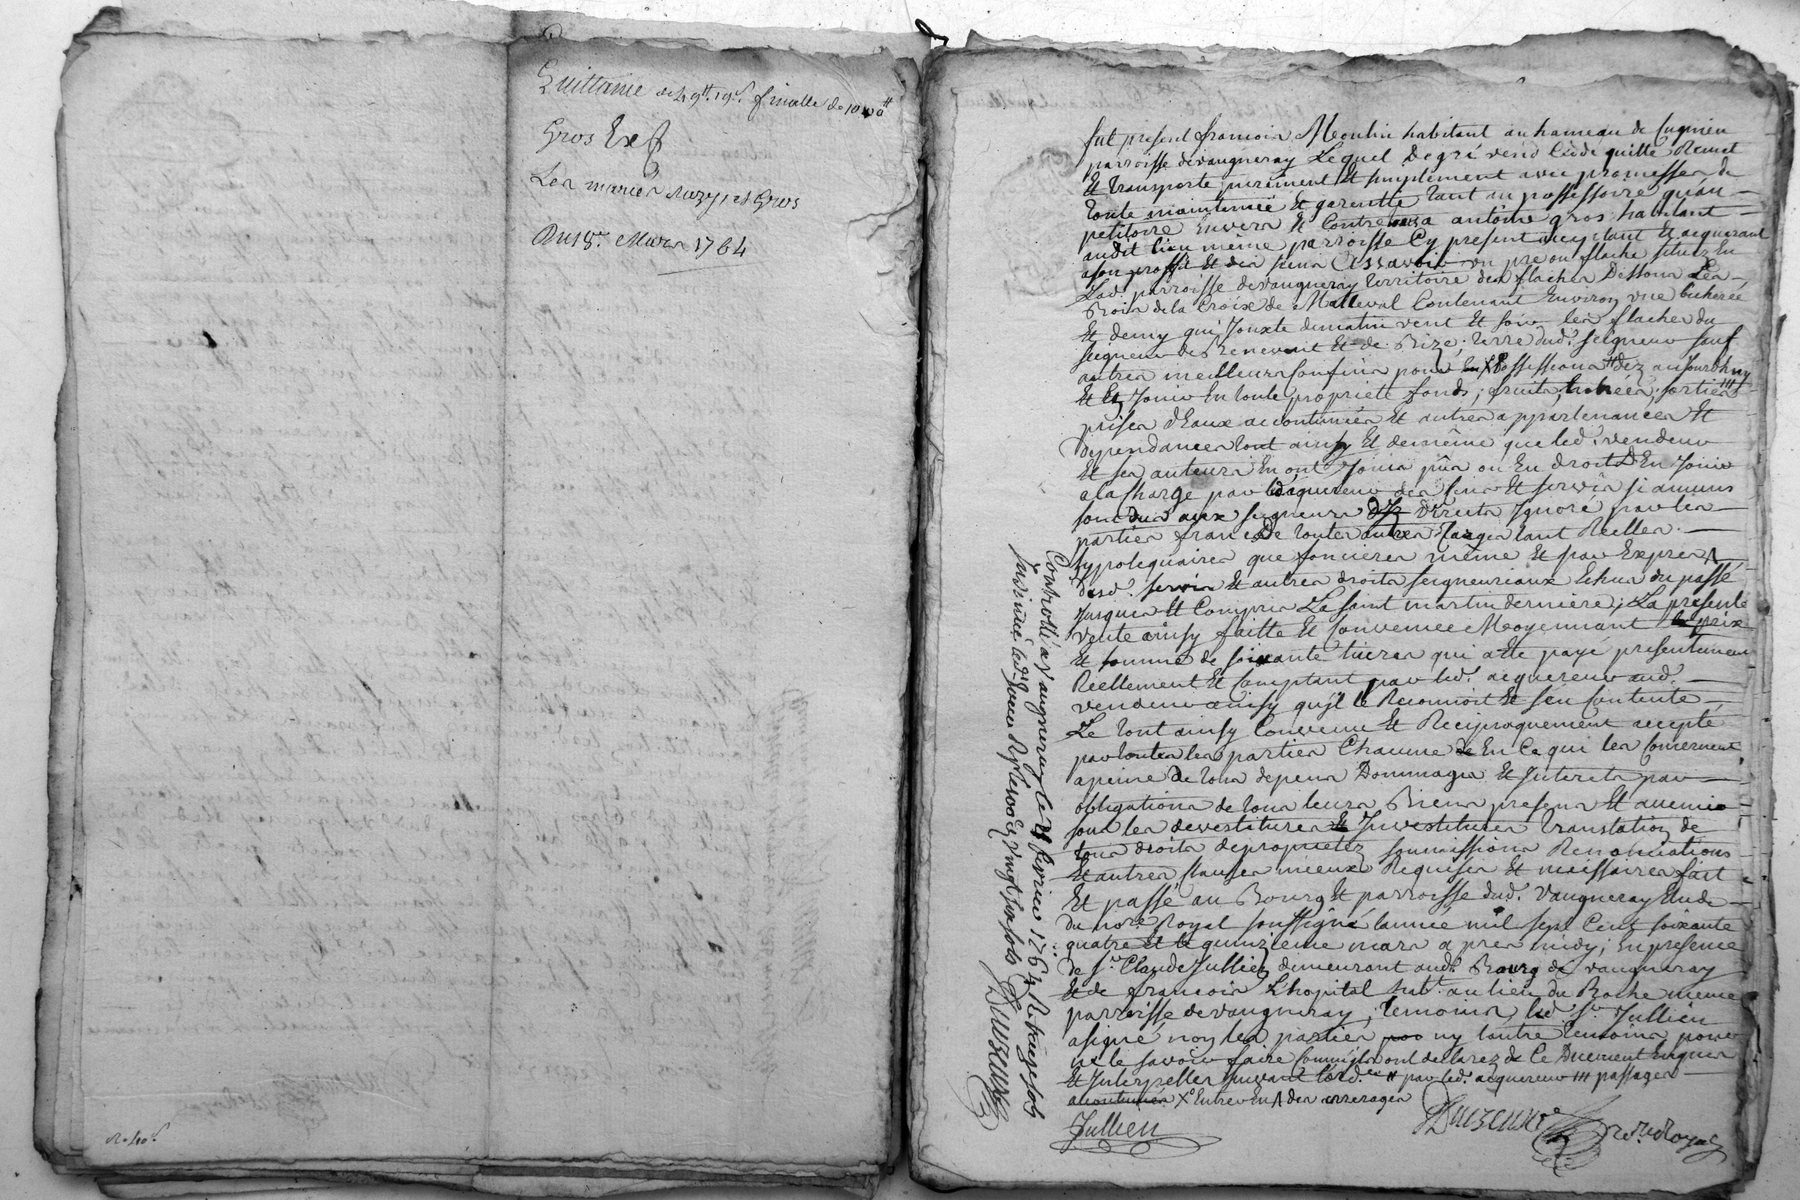 Quittance de 49tt. 19s. finalle de 1000tt
Gros Ex
Les mariés Muzy et Gros
Du 18e. Mars 1764
R. 40s.
fut present francois Moulin habitant au hameau de
parroisse de vaugneray Lequel De gré vend Cede quitte Remet
Et transporte purement Et simplement avec promesses de
toute maintenüe Et garentte tant au possessoire quau
petitoire Envers Et Contre tous a antoine gros habitant
audit lieu même parroisse Cy present acceptant Et acquerant
a son proffit Et des siens Assavoir un pre ou flache situez En
Lad. parroisse de vaugneray territoire des flaches Dessous Les
Bois de la Croix de Malleval Contenant Environ une bicherée
Et demy qui Jouxte de matin vent Et soir les flaches du
seigneur de Benevent Et de Bize terre dud. seigneur sauf
autres meilleurs Confins pour X possessions tt dez aujourdhuy
Et En Jouir En toute proprieté fonds, fruits, arbres, sorties ttt
prises d'Eaux accoutumées Et autres appartenances Et
dependances tout ainsy Et de même que led. vendeur
Et ses auteurs En ont Joüis pûs ou En droits d'En Jouir
a la Charge par L'acquereur des Cens Et servis si aucuns
sont dus aux seigneurs directs Ignoré par les
partie franc De toutes autres Charges tant Reelles
hypotequaires que foncieres même Et par Exprés Λ
desd. servis Et autres droits seigneuriaux Echus du passé
Jusques Et Compris La saint martin derniere; La presente
vente ainsy faitte Et Convenüe Moyennant le prix
Et somme de soixante livres qui a Ete payé presentement
Réellement Et Comptant par led. acquereur aud.
vendeur ainsy qu'jl le Reconnoit Et s'en Contente
Le tout ainsy Convenu Et Reciproquement accepté
par toutes les parties Chacune En Ce qui les Concernent
a peine de tous depens Dommages Et Interets par
obligations de tous leurs Biens presens Et avenir
sous les devestitures Et Jnvestitures translation de
tous droits de proprietez soumissions Renonciations
Et autres Clauses mieux Requises Et necessaires fait
Et passé au Bourg Et parroisse dud. Vaugneray Etude
du nore. Royal soussigné l'année mil sept Cent soixante
quatre Et le quinzieme mars apres midy; En presence
de sr. Claude Jullien demeurant aud. Bourg de vaugneray
Et de francois Lhopital habt. au lieu du Roche meme
parroisse de vaugneray, temoins led. sr. Jullien
a signé non les parties ny lautre temoins pour
ne le savoir faire Comm'jls ont declarez de Ce Duement Enquis
Et Jnterpellez suivant l'ord. ce tt par led. acquereur ttt passages
accoutumés X Entrer En Λ des arrerages
Jullien
Duzeune nre. Royal
Controllé a Vaugneray le fevrier 1764 R. treize sols
Insinüé led. Jour R. vingt six sols Duzeune